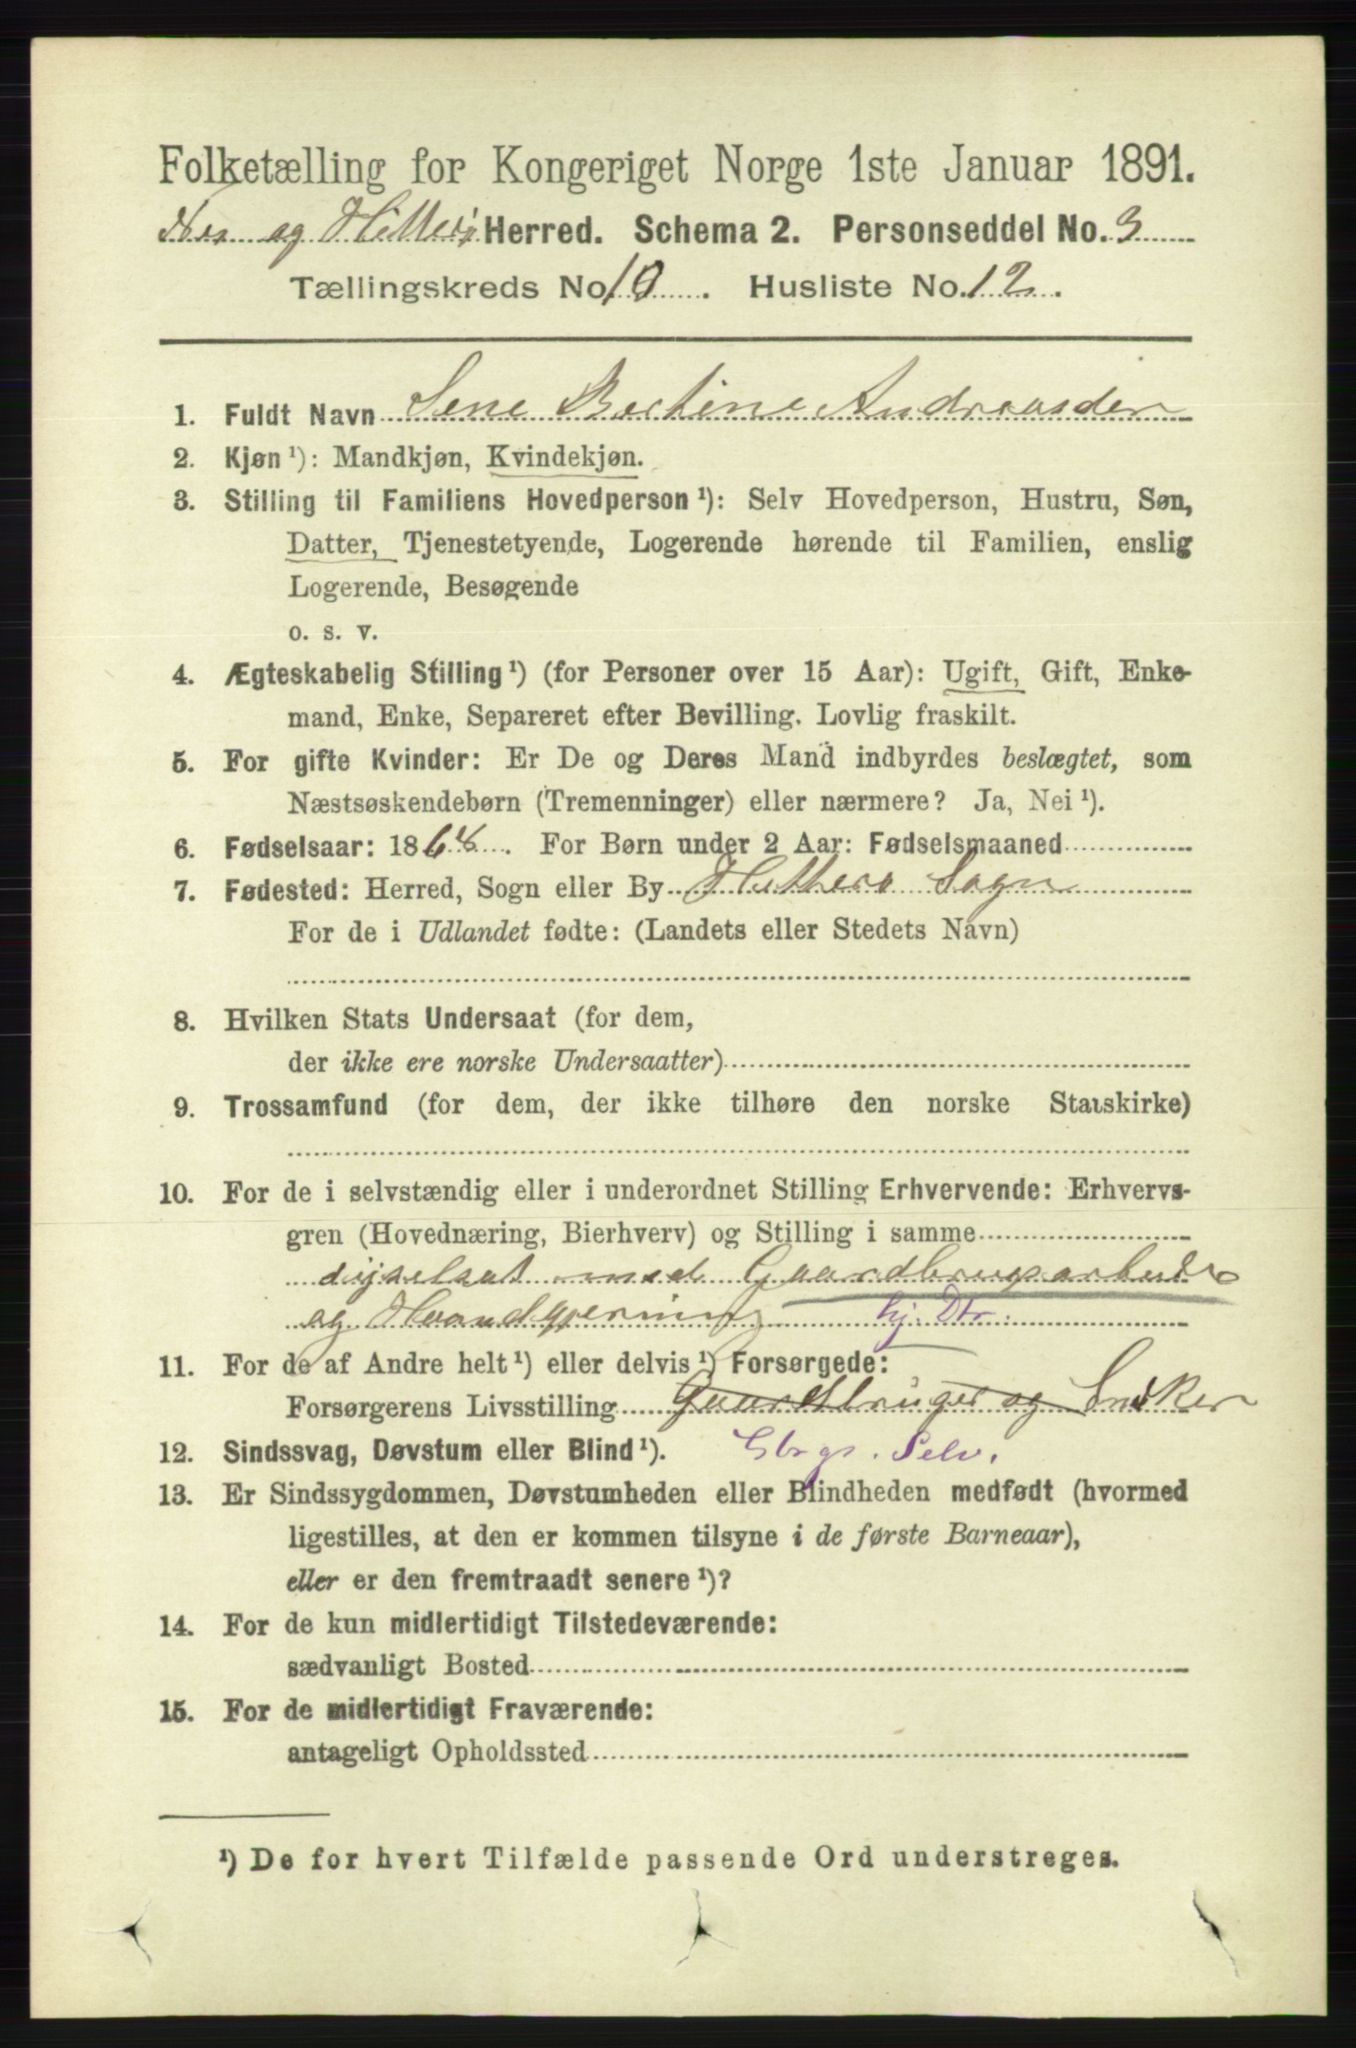 Folketælling for Kongeriget Norge 1ste Januar 1891.
Nes og Hitterø Herred. Schema 2. Personseddel No. 3
Tællingskreds No. 10. Husliste No. 12.
1. Fuldt Navn Sene Bertine Andreasden
2. Kjøn ¹): Mandkjøn, Kvindekjøn.
3. Stilling til Familiens Hovedperson ¹): Selv Hovedperson, Hustru, Søn,
Datter, Tjenestetyende, Logerende hørende til Familien, enslig
Logerende, Besøgende
o. s. v.
4. Ægteskabelig Stilling ¹) (for Personer over 15 Aar): Ugift, Gift, Enke-
mand, Enke, Separeret efter Bevilling. Lovlig fraskilt.
5. For gifte Kvinder: Er De og Deres Mand indbyrdes beslægtet, som
Næstsøskendebørn (Tremenninger) eller nærmere? Ja, Nei ¹).
6. Fødselsaar: 1868. For Børn under 2 Aar: Fødselsmaaned
7. Fødested: Herred, Sogn eller By Hitterø Sogn
For de i Udlandet fødte: (Landets eller Stedets Navn)
8. Hvilken Stats Undersaat (for dem,
der ikke ere norske Undersaatter)
9. Trossamfund (for dem, der ikke tilhøre den norske Statskirke)
10. For de i selvstændig eller i underordnet Stilling Erhvervende: Erhvervs-
gren (Hovednæring, Bierhverv) og Stilling i samme
dyselsat med Gaardbrugsarbeide
og Haandgjerning hj. Dtr.
11. For de af Andre helt ¹) eller delvis ¹) Forsørgede:
Forsørgerens Livsstilling Gaardbruger og Snedker
12. Sindssvag, Døvstum eller Blind ¹). Gbrgs. Selv.
13. Er Sindssygdommen, Døvstumheden eller Blindheden medfødt (hvormed
ligestilles, at den er kommen tilsyne i de første Barneaar),
eller er den fremtraadt senere ¹)?
14. For de kun midlertidigt Tilstedeværende:
sædvanligt Bosted
15. For de midlertidigt Fraværende:
antageligt Opholdssted
¹) De for hvert Tilfælde passende Ord understreges.